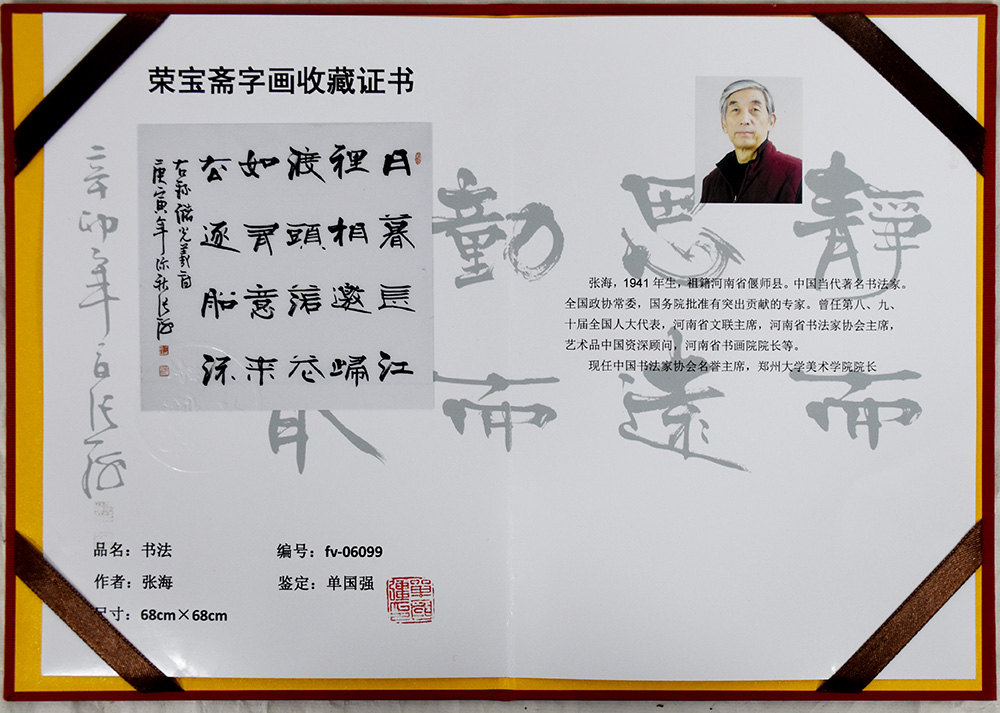 荣宝斋字画收藏证书
日暮長江
裡相邀歸
渡頭落花
如有意来
去逐船流
右録儲光羲詩
庚寅年深秋張海
靜而
思遠
動而
辛卯年
張海
张海，1941年生，祖籍河南省偃师县。中国当代著名书法家。
全国政协常委，国务院批准有突出贡献的专家。曾任第八、九、
十届全国人大代表，河南省文联主席，河南省书法家协会主席，
艺术品中国资深顾问，河南省书画院院长等。
现任中国书法家协会名誉主席，郑州大学美术学院院长
品名：书法
编号：fv-06099
作者：张海
鉴定：单国强
尺寸：68cm×68cm